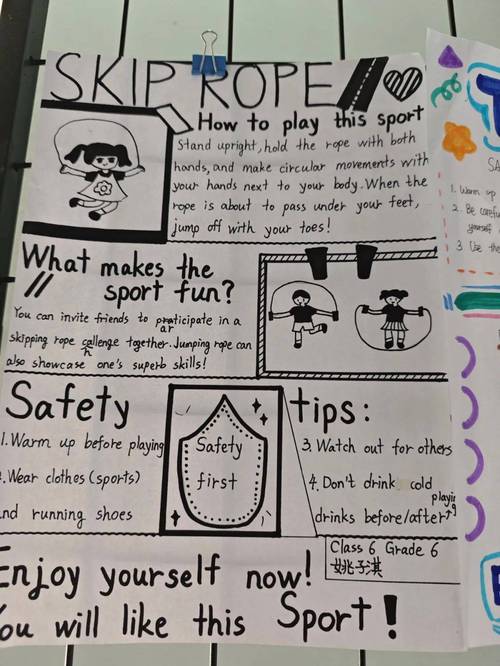 SKIP ROPE
How to play this sport
Stand upright, hold the rope with both
hands, and make circular movements with
your hands next to your body. When the
rope is about to pass under your feet,
jump off with your toes!
What makes the
sport fun?
You can invite friends to praticipate in a
ar
skipping rope callenge together. Jumping rope can
h
also showcase one's superb skills!
Safety tips:
1. Warm up before playing
.Wear clothes (sports)
nd running shoes
Safety
first
3. Watch out for others
4. Don't drink cold
playi
drinks before/after
Class 6 Grade 6
姚子淇
Enjoy yourself now!
You will like this Sport!
SA
1. Warm up
2. Be carefu
yourself
3. Use the